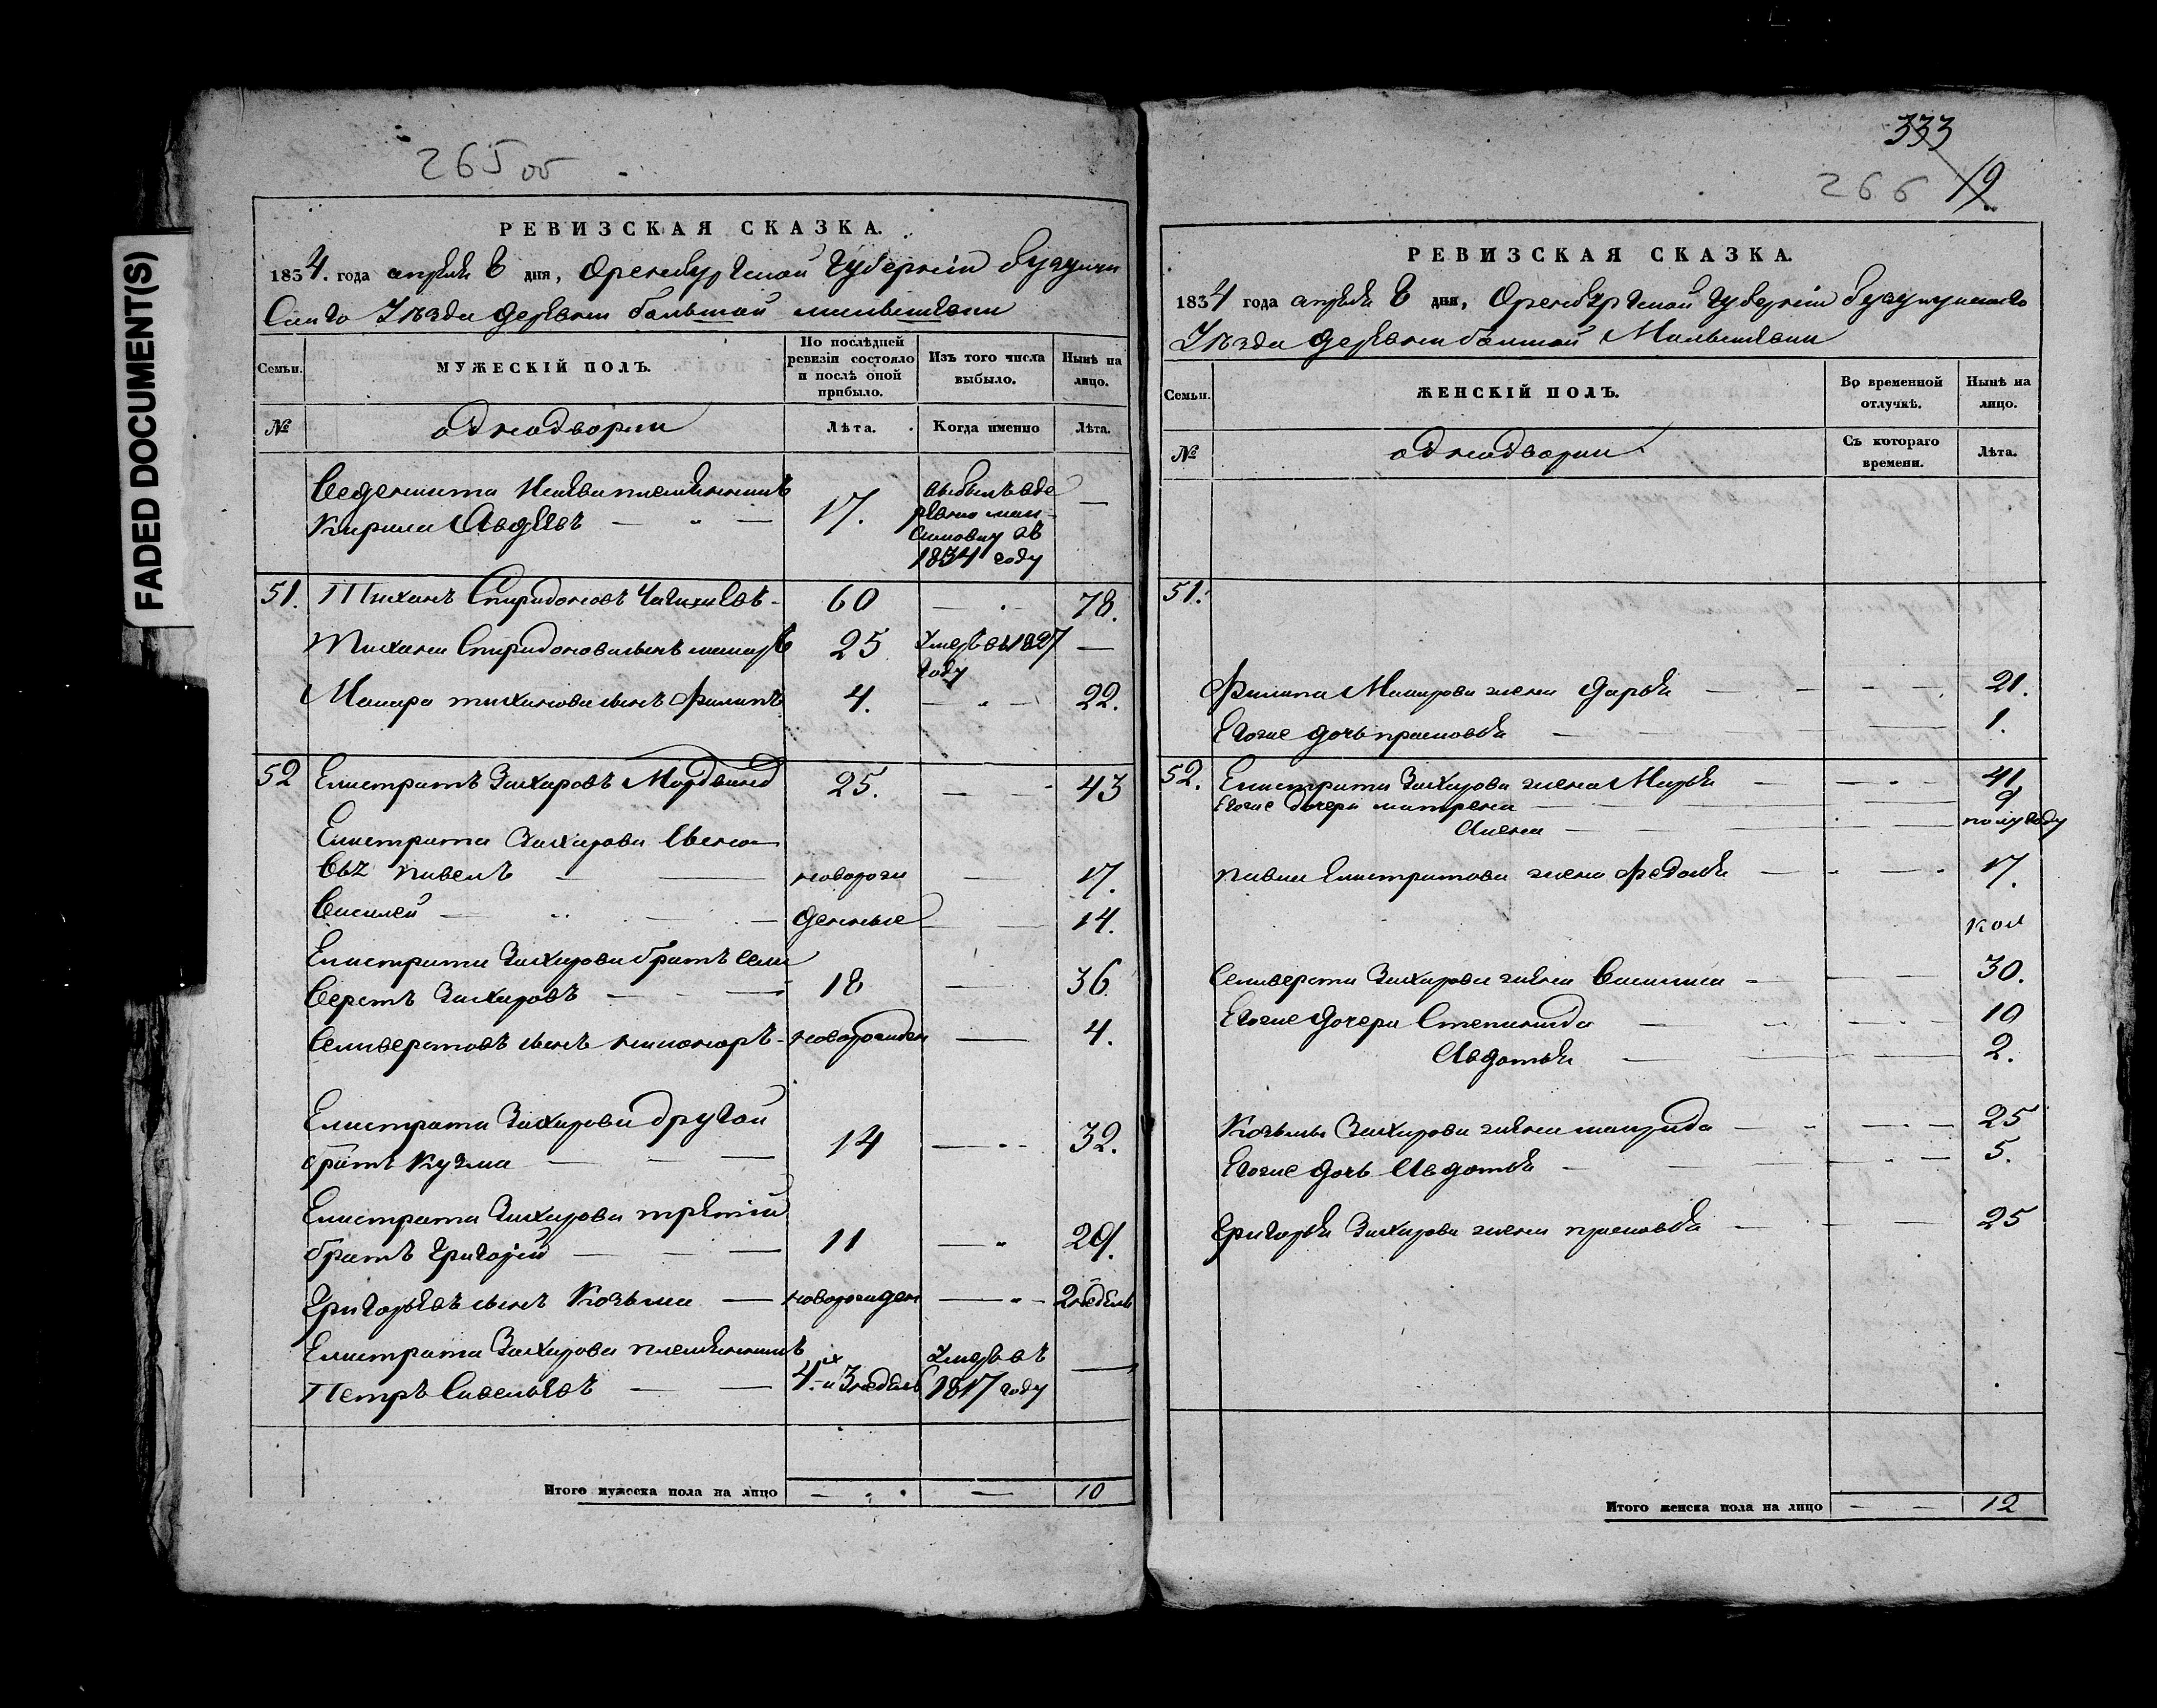 FADED DOCUMENT(S)
265 об
РЕВИЗСКАЯ СКАЗКА.
1834. года апреля дня, Оренбургской губернии бузулук
Скаго Уезда деревни большой
Семьи.
МУЖЕСКІЙ ПОЛЪ.
По послѣдней ревизіи состояло и послѣ оной прибыло.
Изъ того числа выбыло.
Нынѣ на лицо.
№
однодворцы
Лѣта.
Когда именно
Лѣта.
племянникъ
Кирила Авдеевъ — 17.
выбылъ вде
ревню мак
симовку въ
1834 году
51. Тихонъ Спиридоновъ 60 — 78.
Тихона Спиридонова сынъ 25 умеръ въ 1827 году —
тихонова сынъ Филипъ 4. — 22.
52 Елистратъ Захаровъ Мордвинов 25. — 43
Елистрата Захарова сыно
вья Павелъ — новорож — 17.
Василей — денные — 14.
Елистрата Захарова братъ Сели
верстъ Захаровъ — 18 — 36
Селиверстовъ сынъ никоноръ - новорожден — 4.
Елистрата Захарова другой
братъ Кузма — 14 — 32.
Елистрата Захарова третий
братъ Григорий — 11 — 29.
Григорьевъ сынъ Козьма — новорожден — 2 недель
Елистрата Захарова племянникъ
Петръ Савельевъ — 4х и 3 недель умеръ въ 1817 году —
Итого мужеска пола на лицо — — 10
333
266 19
РЕВИЗСКАЯ СКАЗКА.
1834 года апреля дня, Оренбургской губернии бузулускаго
Уезда деревни большой
Семьи.
ЖЕНСКІЙ ПОЛЪ.
Во временной отлучкѣ.
Нынѣ на лицо.
№
однодворцы
Съ котораго времени.
Лѣта.
51.
Филипа жена Дарья — 21.
Ево же дочь прасковья — 1.
52. Елистрата Захарова жена Марья — 41
Ево же дочери матрена — 9
Алена — полугоду
Павла Елистратова жена Федосья — 17.
Селиверста Захарова жена Василиса — 30.
Ево же дочери Степанида — 10
Авдотья — 2.
Козьмы Захарова жена — 25
Ево же дочь Авдотья — 5.
Григорья Захарова жена прасковья — 25
Итого женска пола на лицо — — 12